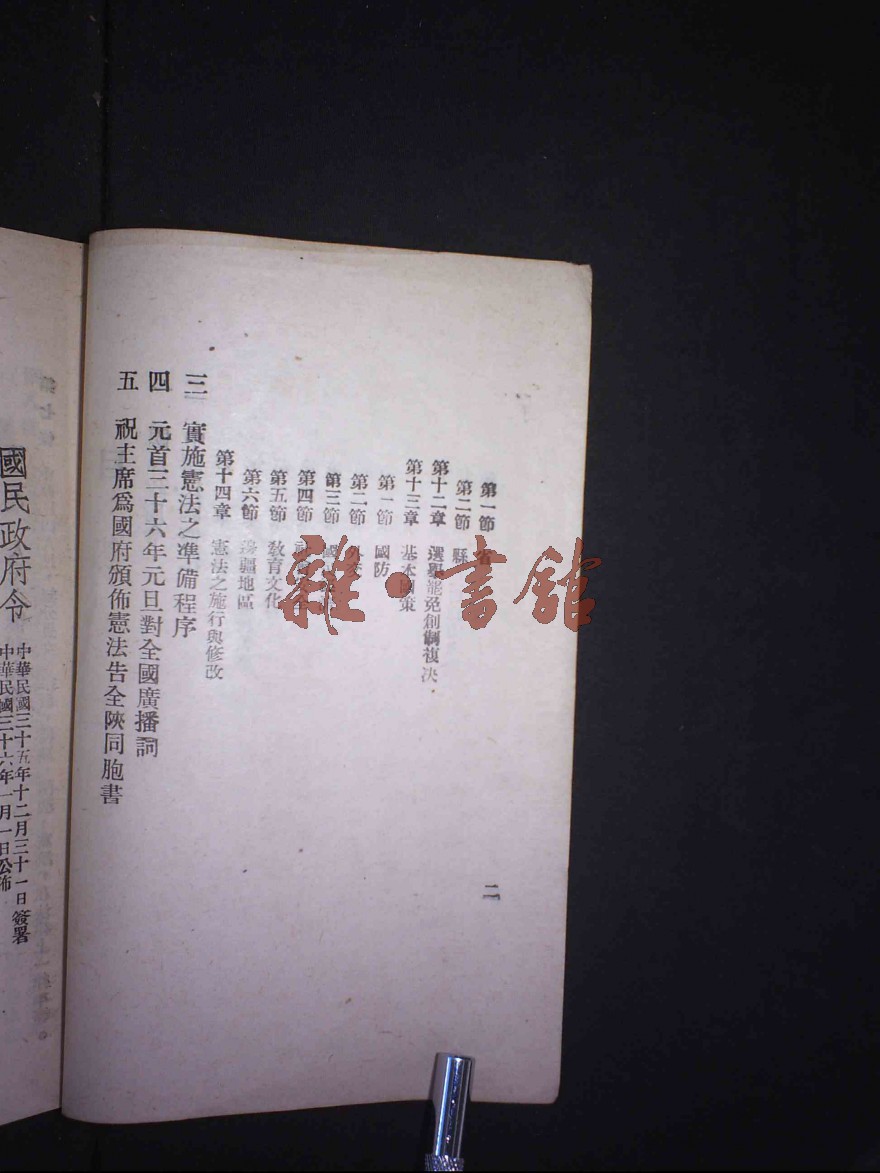 第一節 省
第二節 縣
第十二章 選舉罷免創制複决
第十三章 基本國策
第一節 國防
第二節 外交
第三節 國
第四節
第五節 敎育文化
第六節 邊疆地區
第十四章 憲法之施行與修改
三 實施憲法之準備程序
四 元首三十六年元旦對全國廣播詞
五 祝主席爲國府頒佈憲法告全陝同胞書
二
國民政府令
中華民國三十五年十二月三十一日簽署
中華民國三十六年一月一日公佈
雜·書館